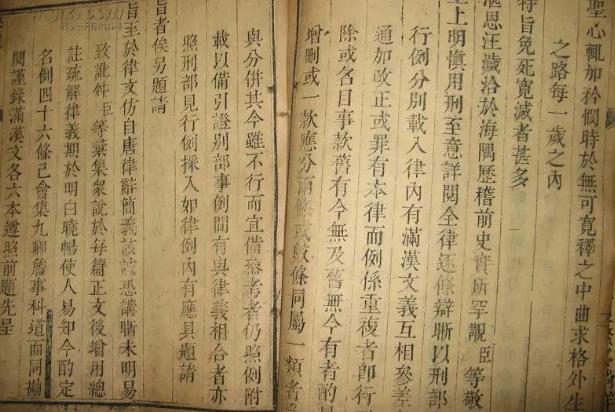 聖心輒加矜憫時於無可寬釋之中曲求格外生
之路每一歲之內
特旨免死寬減者甚多
恩汪濊洽於海隅歷稽前史實所罕覯臣等敬
上明慎用刑至意詳閱全律逐條辯晰以刑部
行例分別載入律內有滿漢文義互相參差
通加改正或罪有本律而例係重複者即行
除或名目事款舊有今無及舊無今有者酌
增刪或一款應分兩條或數條同屬一類者
與分併其今雖不行而宜備參考者仍照例附
載以備引證別部事例間有與律義相合者亦
照刑部見行例採入如律例內有應具題請
旨者俟另題請
旨至於律文仿自唐律辭簡義該誠恐講晰未明易
致訛舛臣等彙集眾說於每篇正文後增用總
註疏解律義期於明白曉暢使人易知今酌定
名例四十六條已會集九卿詹事科道面同勘
閱謹錄滿漢文各六本遵照前題先呈